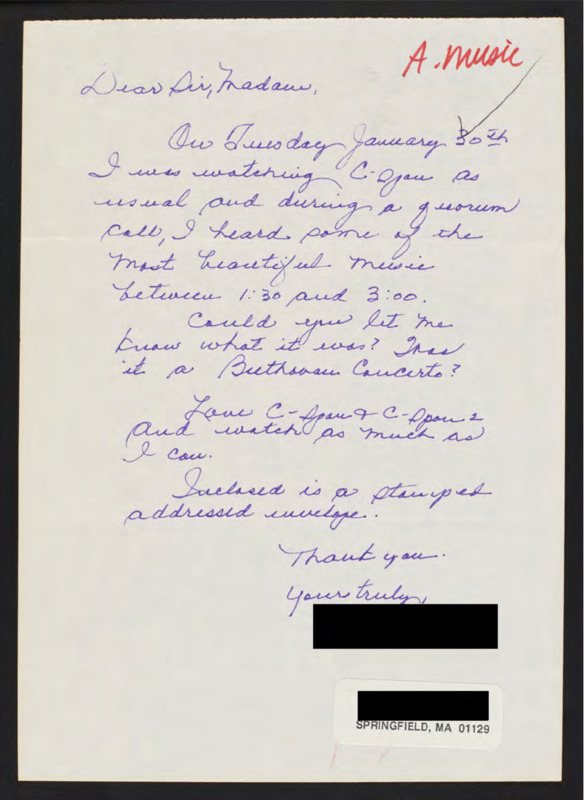 A. Music
Dear Sir, Madam,
On Tuesday January 30th
I was watching C-Span as
usual and during a quorum
call, I heard some of the
most beautiful music
between 1:30 and 3:00.
Could you let me
know what it was? Was
it a Beethovan Concerto?
Love C-Span & C-Span 2
and watch as much as
I can.
Inclosed is a stamped
addressed envelope.
Thank you.
Yours truly,
SPRINGFIELD, MA 01129